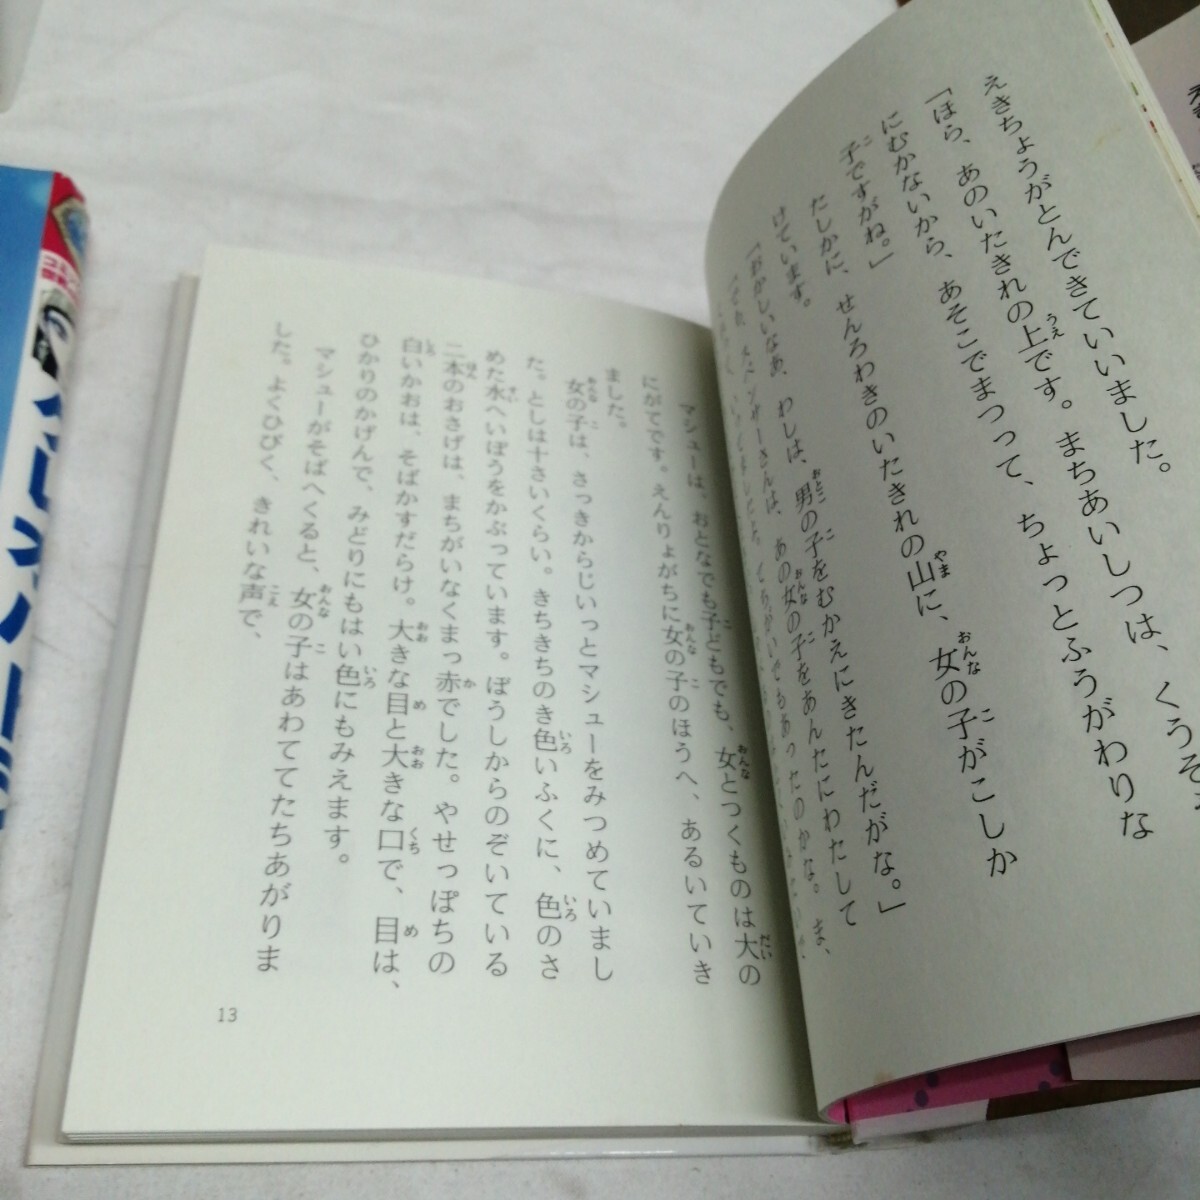 えきちょうがとんできていいました。
「ほら、あのいたきれの上です。まちあいしつは、くうそ
にむかないから、あそこでまつって、ちょっとふうがわりな
子ですがね。」
たしかに、せんろわきのいたきれの山に、女の子がこしか
けています。
「おかしいなあ、わしは、男の子をむかえにきたんだがな。」
スペンサーさんは、あの女の子をあんたにわたして
あったのかな。ま、
マシューは、おとなでも子どもでも、女とつくものは大の
にがてです。えんりょがちに女の子のほうへ、あるいていき
ました。
女の子は、さっきからじいっとマシューをみつめていまし
た。としは十さいくらい。きちきちのき色いふくに、色のさ
めた水へいぼうをかぶっています。ぼうしからのぞいている
二本のおさげは、まちがいなくまっ赤でした。やせっぽちの
白いかおは、そばかすだらけ。大きな目と大きな口で、目は、
ひかりのかげんで、みどりにもはい色にもみえます。
マシューがそばへくると、女の子はあわててたちあがりま
した。よくひびく、きれいな声で、
13